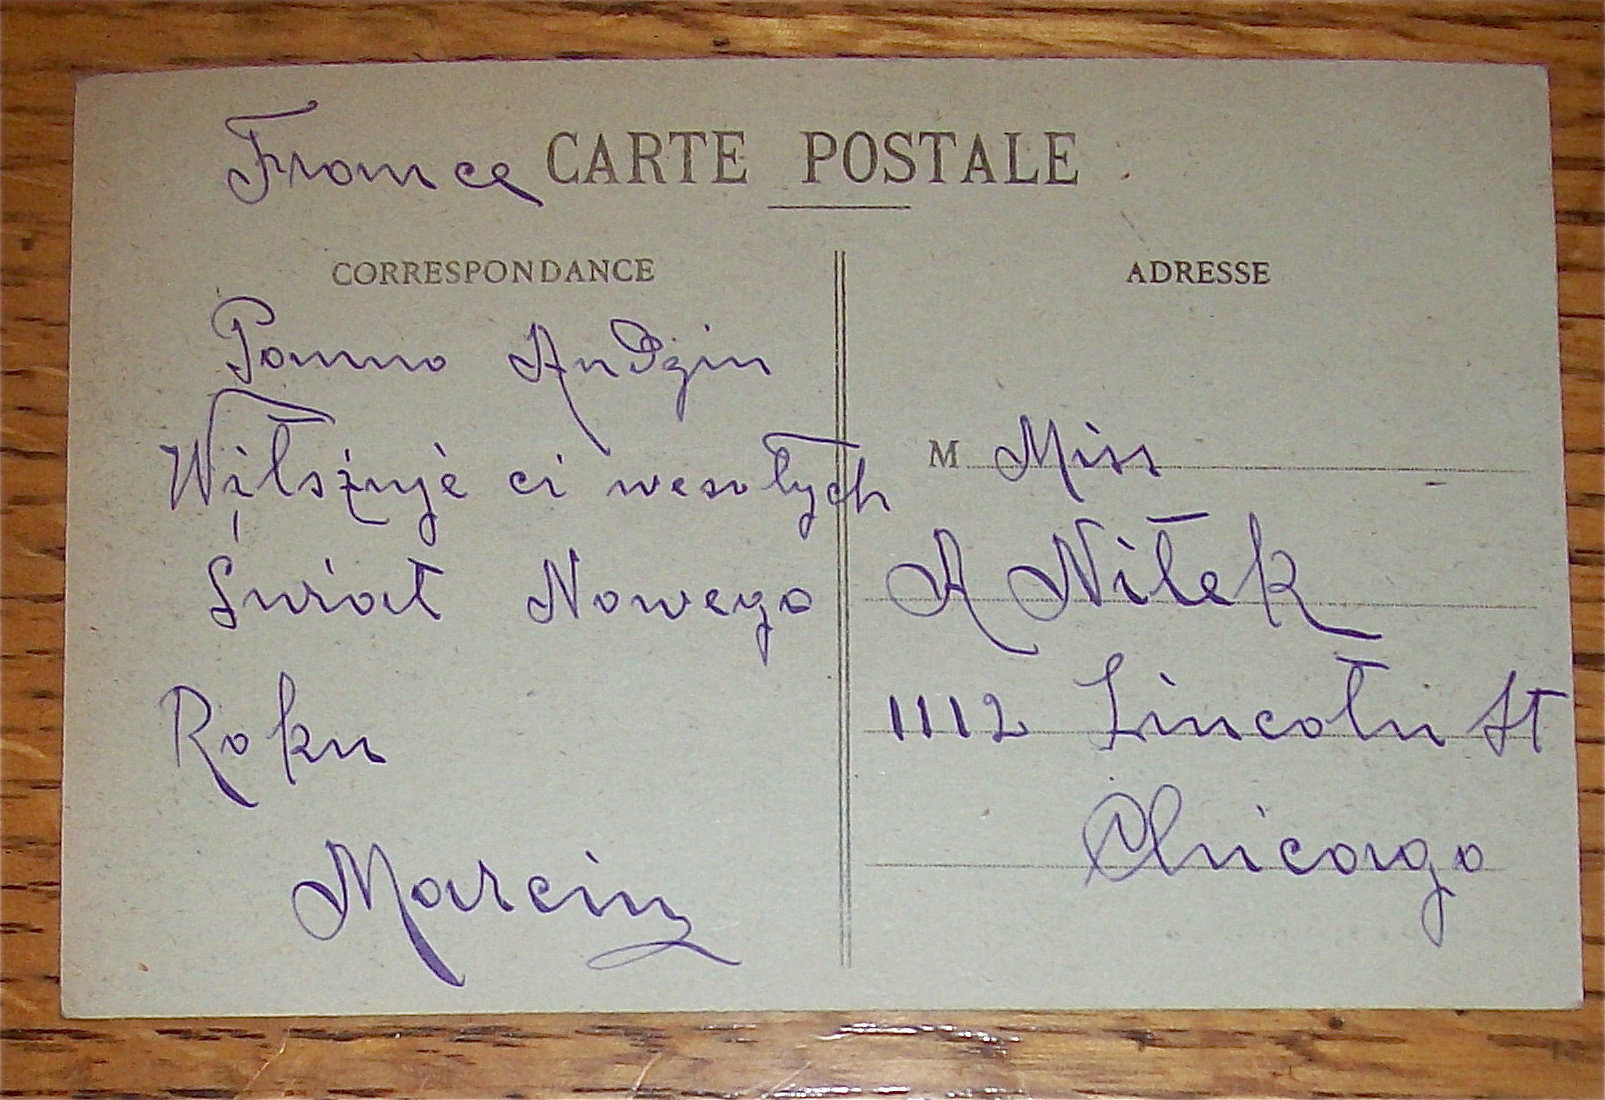 France CARTE POSTALE
CORRESPONDANCE
Panno Andzin
Wiłsżuje ci wesołych
Świat Nowego
Roku
Marcin
ADRESSE
M Miss
A Nitek
1112 Lincoln St
Chicago